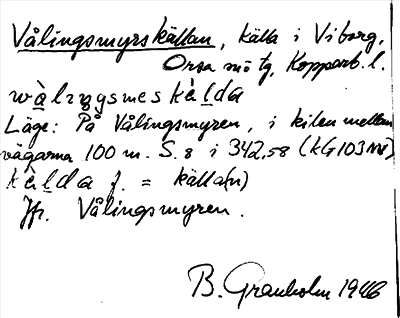 Vålingsmyrskällan, källa i Viborg,
Orsa sn o tg, Kopparb. l.
wàlıŋsmeskɛ̀lda
Läge: På Vålingsmyren, i kilen mellan
vägarna 100 m. S. 8 i 342,58 (KG 103 NV)
kɛ̀lda f. = källa(n)
Jfr. Vålingsmyren.
B. Granholm 1946